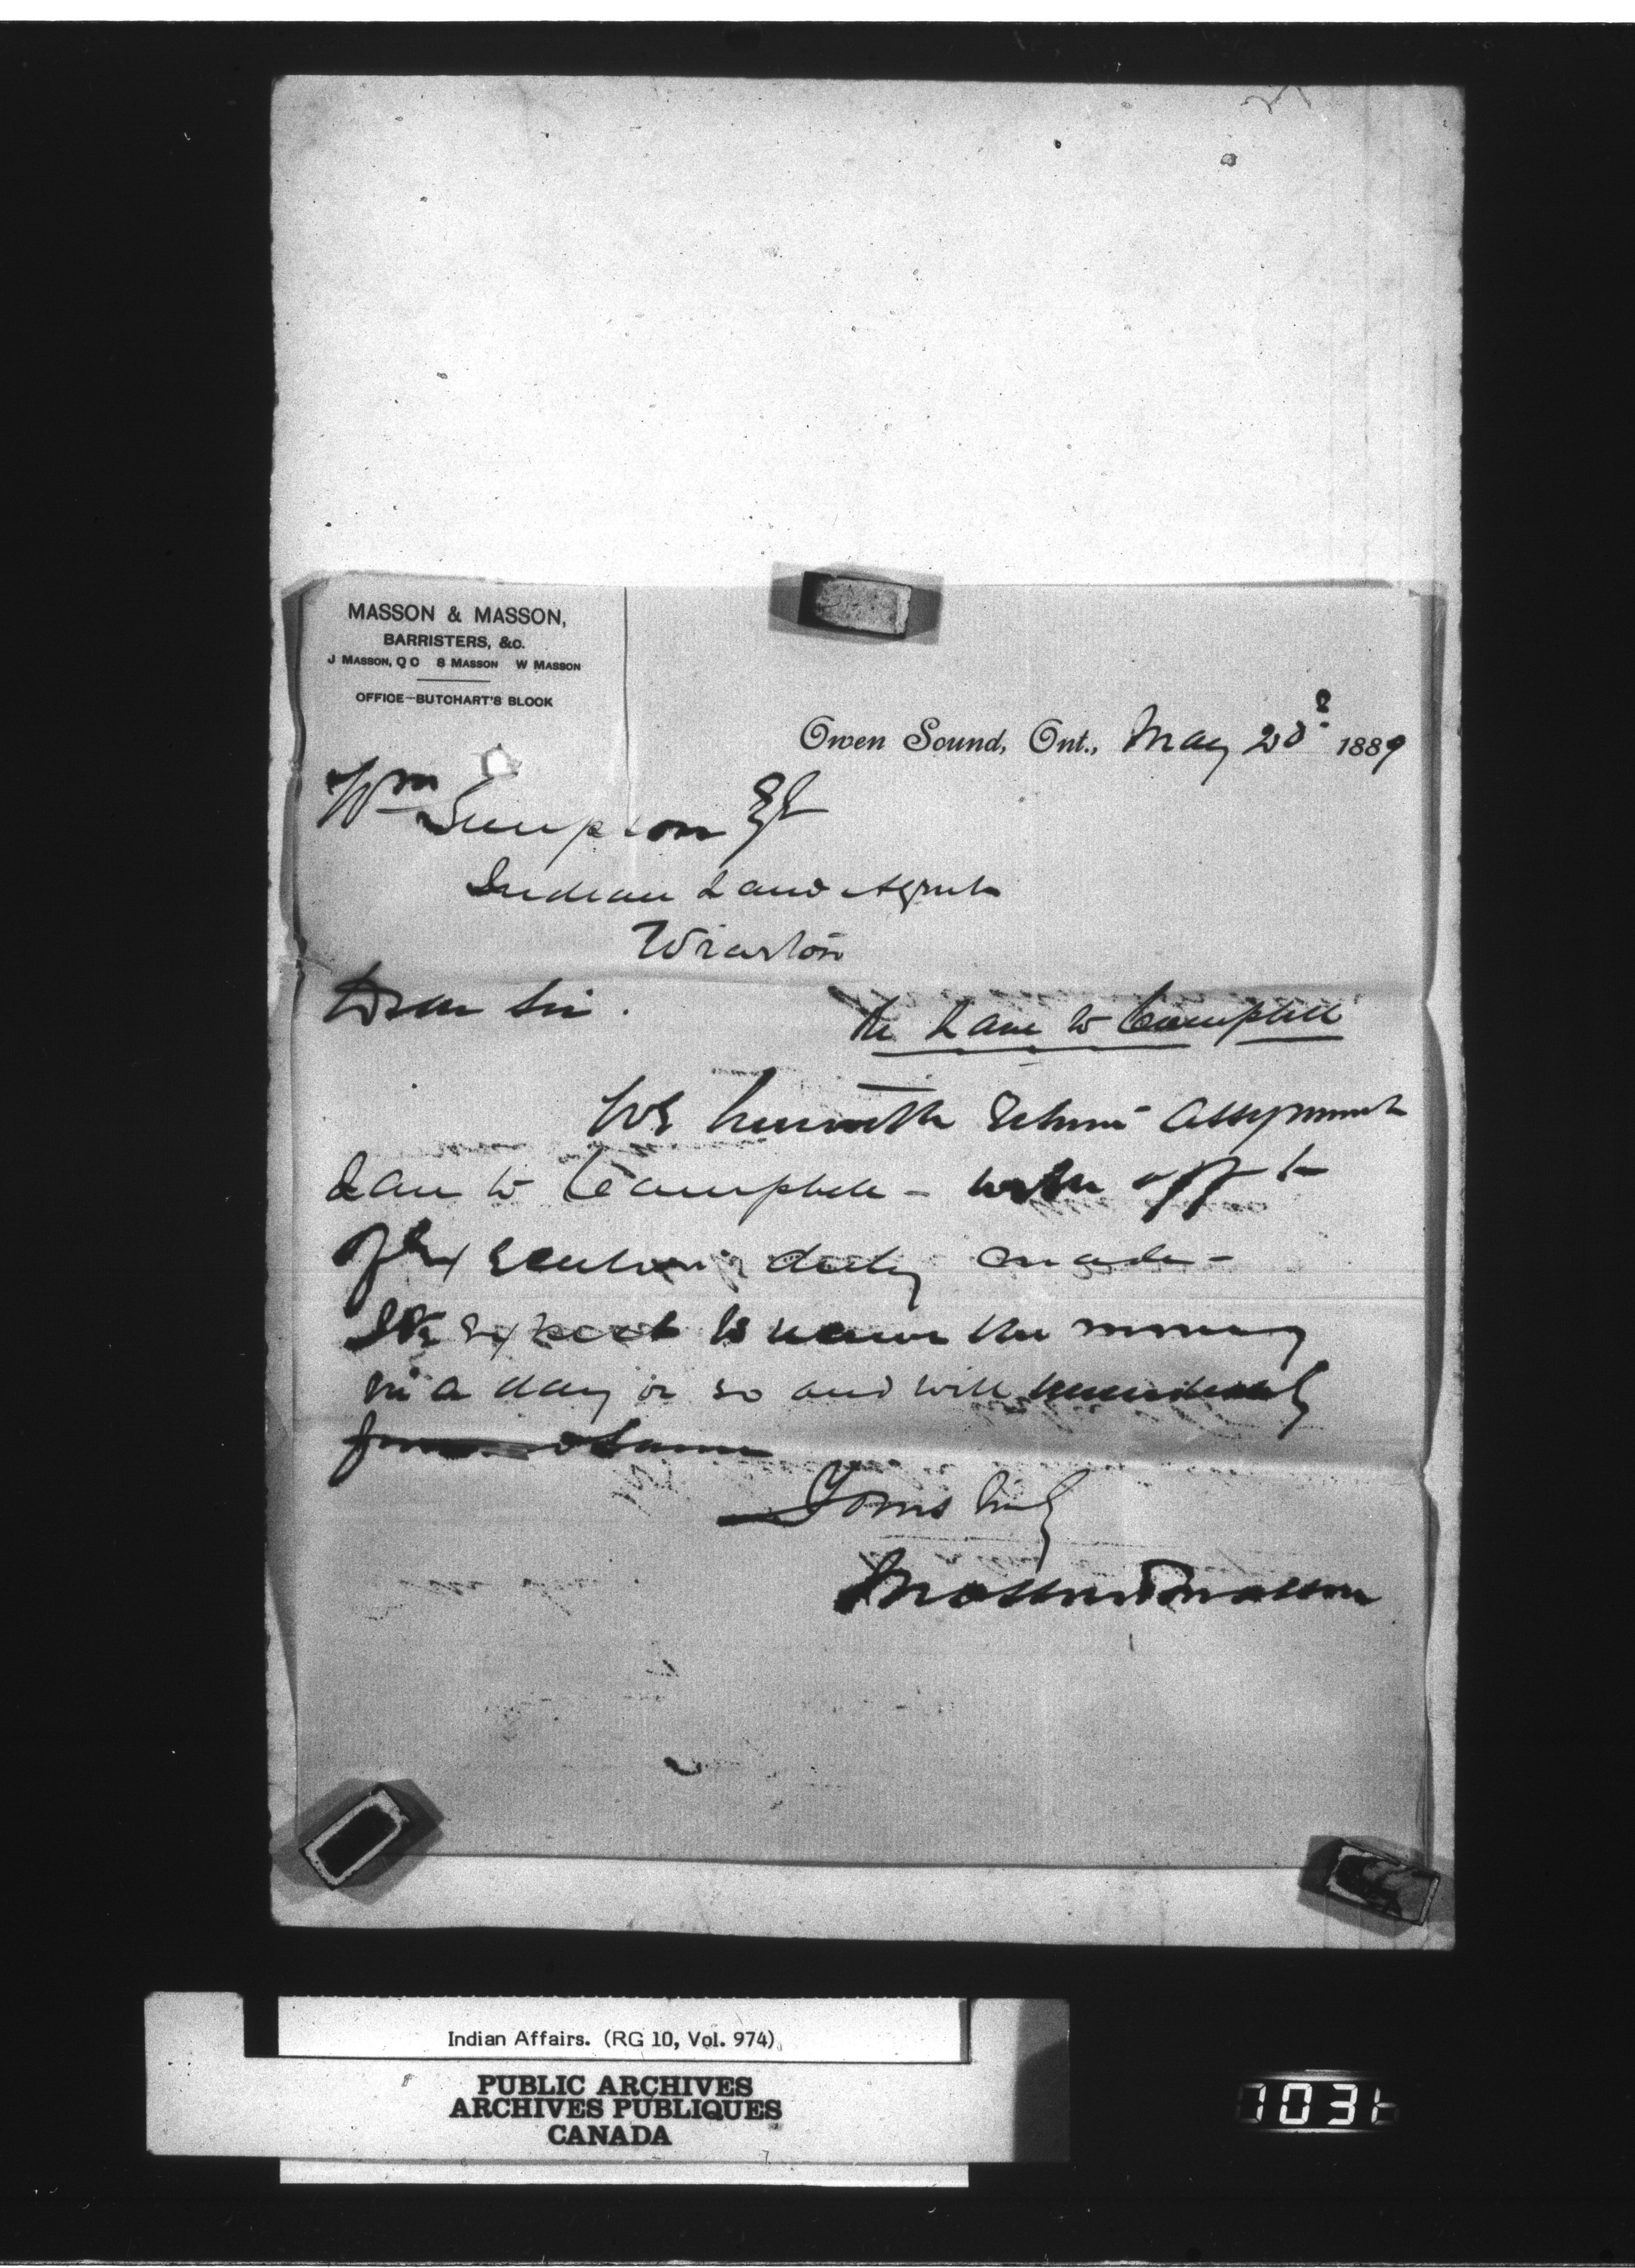 MASSON & MASSON,
BARRISTERS, &c.
J MASSON, Q C S MASSON W MASSON
OFFICE—BUTCHART'S BLOCK
Owen Sound, Ont., May 1889
Wm Simpson Esq
Indian Land Agent
Wiarton
Dear Sir.
Re Lane to Campbell
We herewith return assignment
Lane to Campbell - with afft
of execution duly made -
We expect to receive the money
in a day or so and will immediately
forward same
Yours truly
Masson & Masson
Indian Affairs. (RG 10, Vol. 974)
PUBLIC ARCHIVES
ARCHIVES PUBLIQUES
CANADA